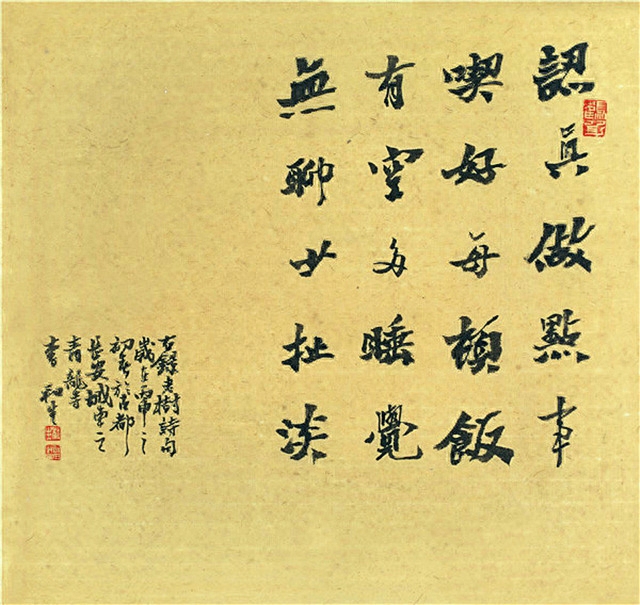 認真做點事
喫好每頓飯
有空多睡覺
無聊少扯淡
右錄老樹詩句
歲在丙申之
初冬於古都
長安城東之
青龍寺
書